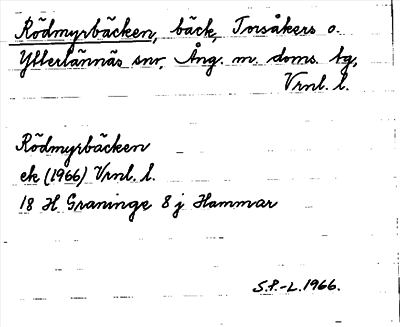 Rödmyrbäcken, bäck, Torsåkers o.
Ytterlännäs snr, Ång. m. doms. tg,
Vrnl. l.
Rödmyrbäcken
ek (1966) Vrnl. l.
18 H Graninge 8 j Hammar
S.P.-L. 1966.